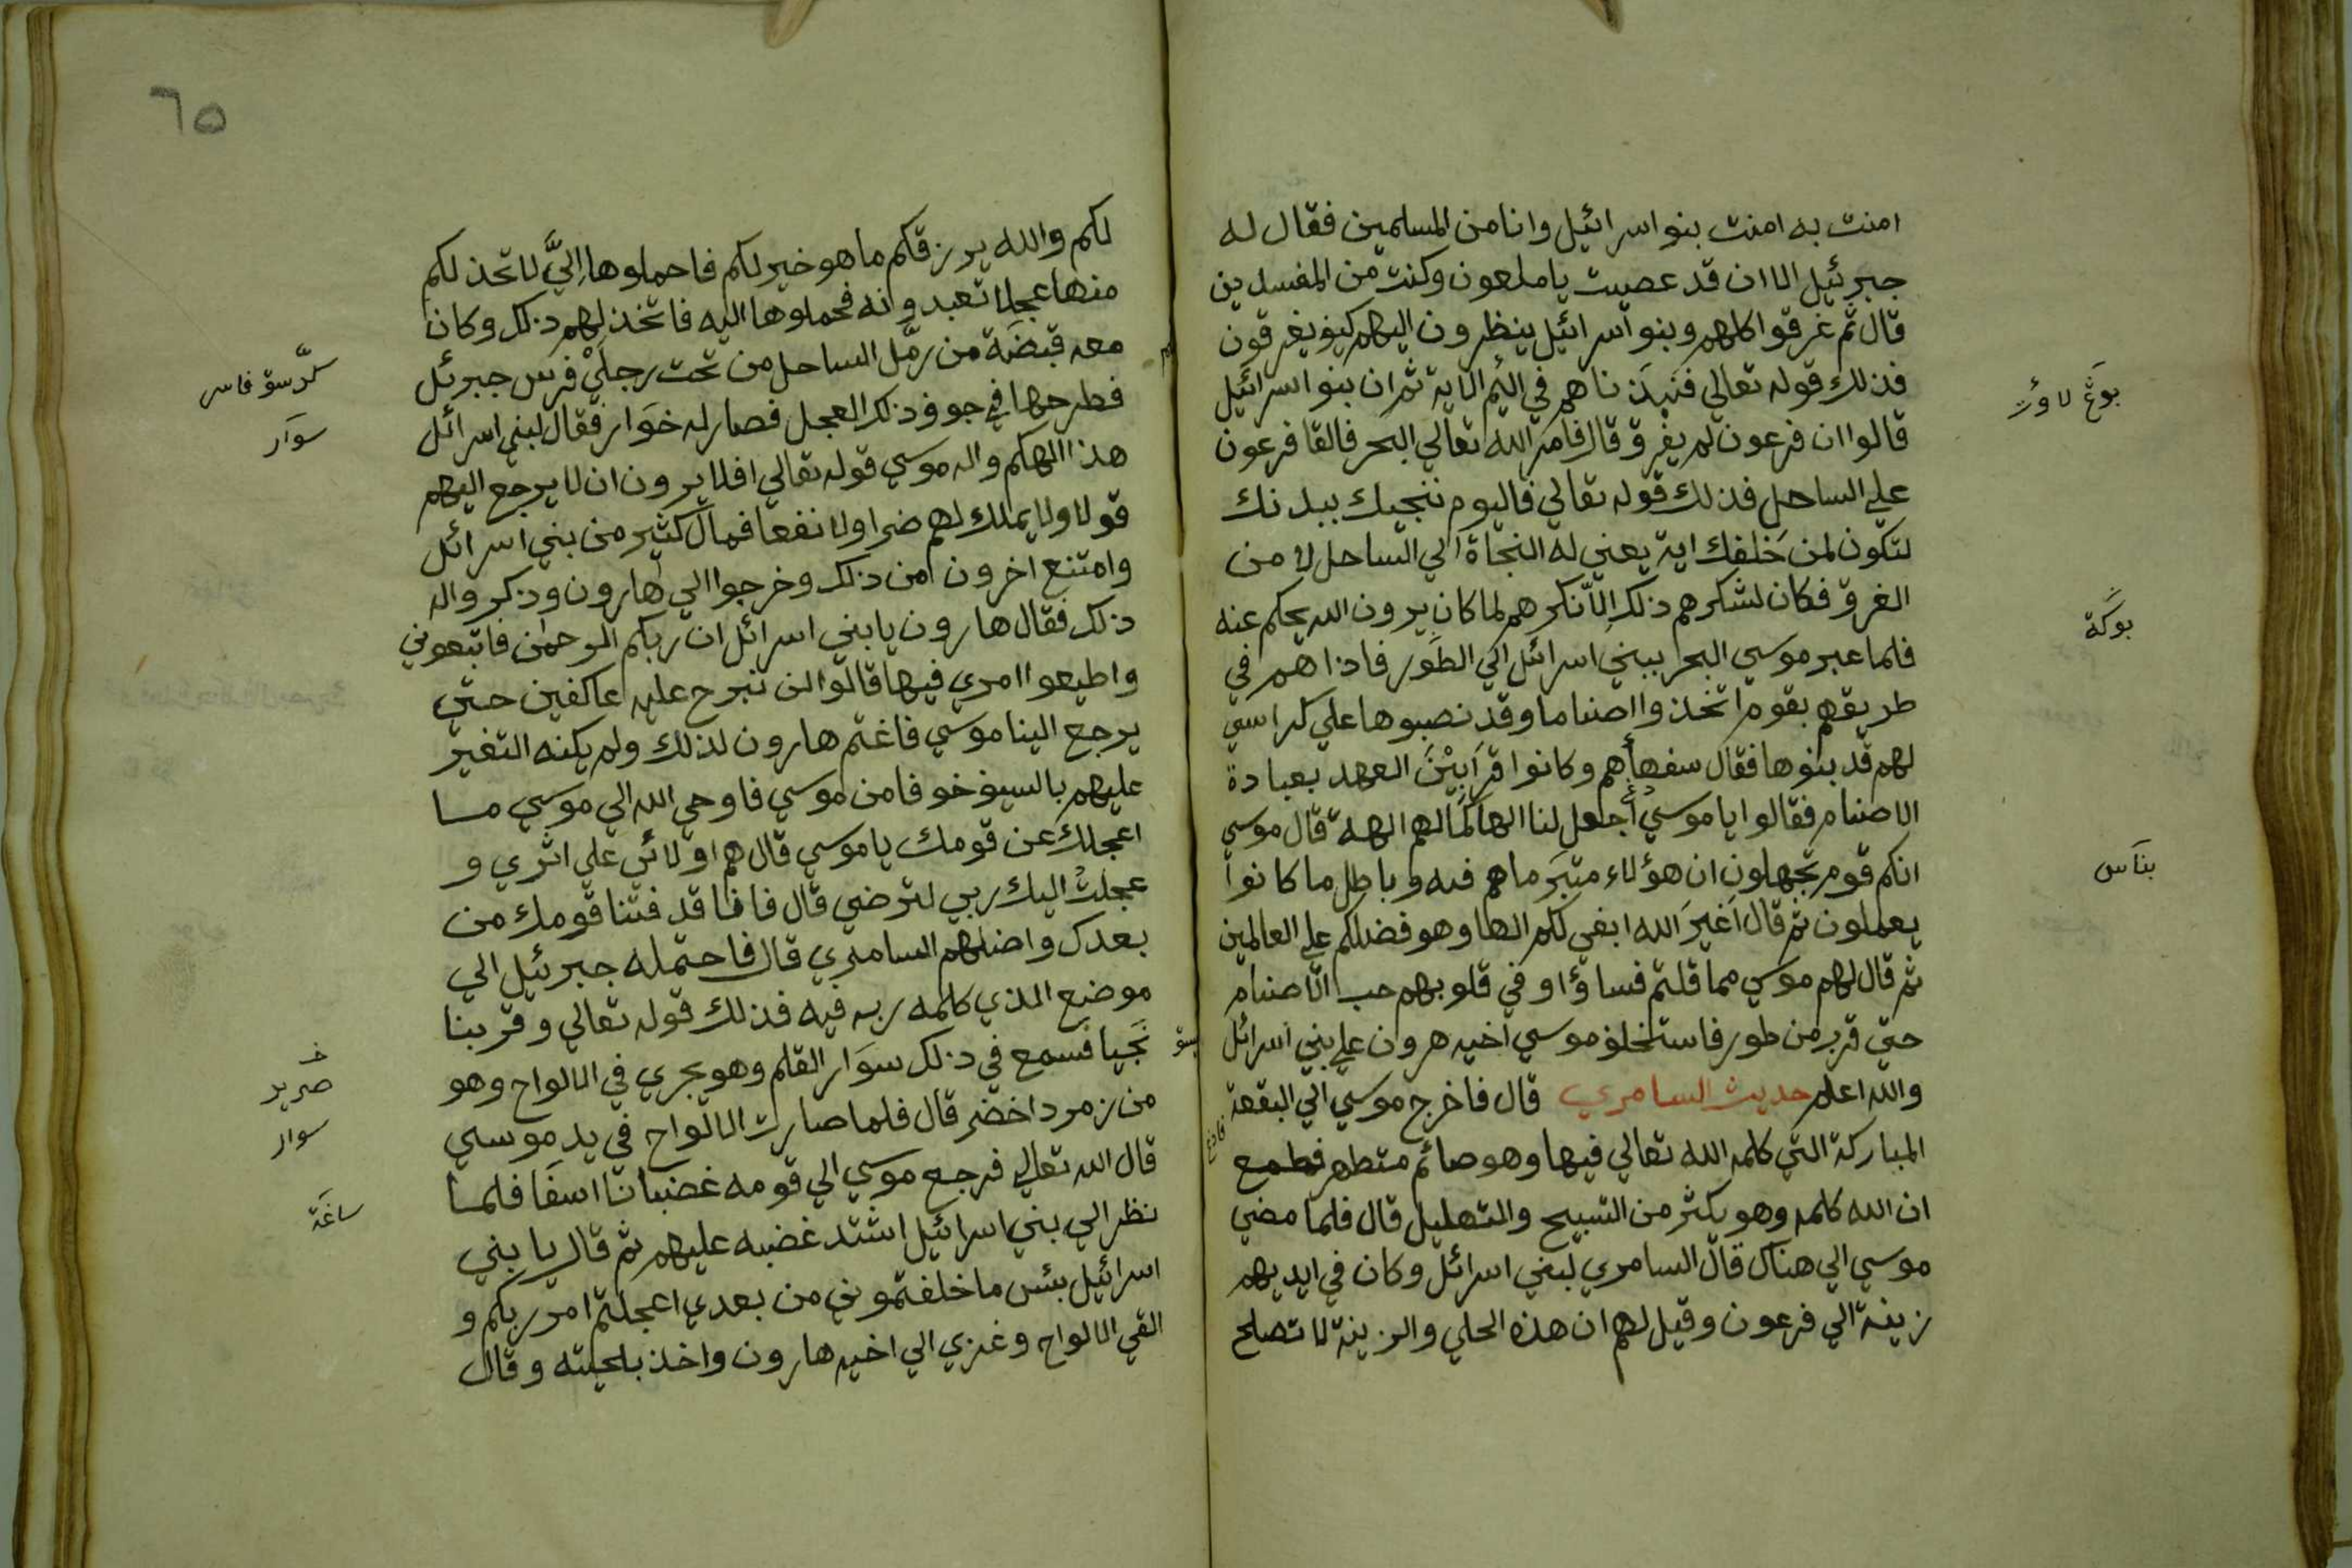 امنت به امنت بنو اسرائيل وانا من المسلمين فقال له
جبرئيل الاان قد عصيت يا ملعون وكنت من المفسدين
قال ثم غرقوا كلهم وبنو اسرائيل ينظرون اليهم كيف يغرقون
فذلك قوله تعالي فنبذناهم في اليم الاية ثم ان بنو اسرائيل
قالوا ان فرعون لم يغرق قال فامر الله تعالي البحر فالقا فرعون
علي الساحل فذلك قوله تعالي فاليوم ننجيك ببدنك
لتكون لمن خلفك اية يعني له النجاة الي الساحل لا من
الغرق فكان لشكرهم ذلك الا نكرهم لما كان يرون الله يحكم عنه
فلما عبر موسي البحر ببني اسرائل الي الطور فاذا هم في
طريقهم بقوم اتخذوا اصناما وقد نصبوها علي كراسي
لهم قد بنوها فقال سفهاهم وكانوا قرابين العهد بعبادة
الاصنام فقالوا يا موسي أجعل لنا الها كما لهم الهة قال موسي
انكم قوم تجهلون ان هؤلاء متبر ما هم فيه وباطل ما كانوا
يعملون ثم قال اغير الله ابغي لكم الها وهو فضلكم علي العالمين
ثم قال لهم موسي مما قلتم فساؤا وفي قلوبهم حب الاصنام
حتي قرب من طور فاستخلف موسي اخيه هرون علي بني اسرائل
والله اعلم حديث السامري قال فاخرج موسي الي البقعة
المباركة التي كلمه الله تعالي فيها وهو صائم متطهر فطمع
ان الله كلمه وهو يكثر من التسبيح والتهليل قال فلما مضي
موسي الي هناك قال السامري لبني اسرائل وكان في ايديهم
زينة الي فرعون وقيل لهم ان هذه الحلي والزينة لا تصلح
بوكة
بناس
٦٥
لكم والله يرزقكم ما هو خير لكم فاحملوها الي لاتخذ لكم
منها عجلا تعبدونه فحملوها اليه فاتخذ لهم ذلك وكان
معه قبضة من رمل الساحل من تحت رجلي فرس جبرئل
فطرحها في جوف ذلك العجل فصار له خوار فقال لبني اسرائل
هذا الهكم واله موسي قوله تعالي افلا يرون ان لا يرجع اليهم
قولا ولا يملك لهم ضرا ولا نفعا فمال كثير من بني اسرائل
وامتنع اخرون من ذلك وخرجوا الي هارون وذكر واله
ذلك فقال هارون يا بني اسرائل ان ربكم الرحمن فاتبعوني
واطيعوا امري فيها قالوا لن نبرح عليه عاكفين حتي
يرجع الينا موسي فاغتم هارون لذلك ولم يكنه التغير
عليهم بالسيف خوفا من موسي فاوحي الله الي موسي مسا
اعجلك عن قومك يا موسي قال هم اولائي علي اثري و
عجلت اليك ربي لترضي قال فانا قد فتنا قومك من
بعدك واضلهم السامري قال فاحتمله جبرئيل الي
موضع الذي كلمه ربه فيه فذلك قوله تعالي وقربنا
نجيا فسمع في ذلك سوار القلم وهو يجري في الالواح وهو
من زمرد اخضر قال فلما صارت الالواح في يد موسي
قال الله تعالي فرجع موسي الي قومه غضبانا اسفا فلمسا
نظر الي بني اسرائيل اشتد غضبه عليهم ثم قال يا بني
اسرائيل بئس ما خلفتموني من بعدي اعجلتم امر ربكم و
القي الالواح وغزي الي اخيه هارون واخذ بلحيته وقال
سوار
صرير
سوار
ساغة